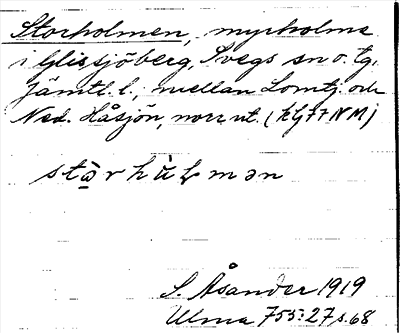 Storholmen, myrholme
i Glissjöberg, Svegs sn o. tg,
Jämtl. l.; mellan Lomtj. och
Ned. Håsjön, norr ut.
stɷ̀r hùl̥ mən
S. Åsander 1919
Ulma 755:27 s. 68